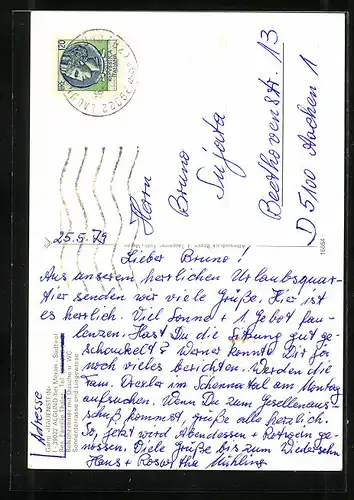 120
REPUBBLICA ITALIANA
39022
Herrn
Bruno
Sujata
Beethovenstr. 13
D 5100 Aachen 1
16554
25.5.79
Lieber Bruno!
Aus unserem herrlichen Urlaubsquar-
tier senden wir viele Grüße. Hier ist
es herrlich. Viel Sonne + 1. Gebot fau-
lenzen. Hast Du die Sitzung gut ge-
schaukelt? Werner konnte Dir ja
noch vieles berichten. Werden die
Fam. Drexler im Schennatal am Montag
aufsuchen. Wenn Du zum Gesellenaus-
schuß kommst, grüße alle herzlich.
So, jetzt wird Abendessen + Rotwein ge-
nossen. Viele Grüße bis zum Wiedersehn
Hans + Roswitha Mühling
Adresse
I-39022 ALGUND bei Meran - Südtirol